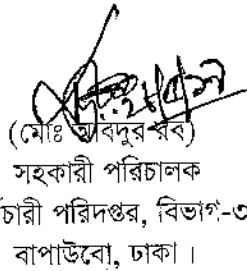 (মোঃ আবিদুর রব)
সহকারী পরিচালক
চারী পরিদপ্তর, বিভাগ-৩
বাপাউবো, ঢাকা।